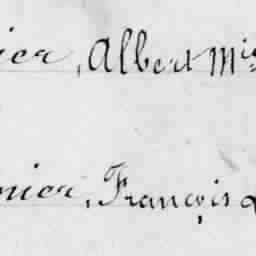 ier, Albert Mis
nier, François &